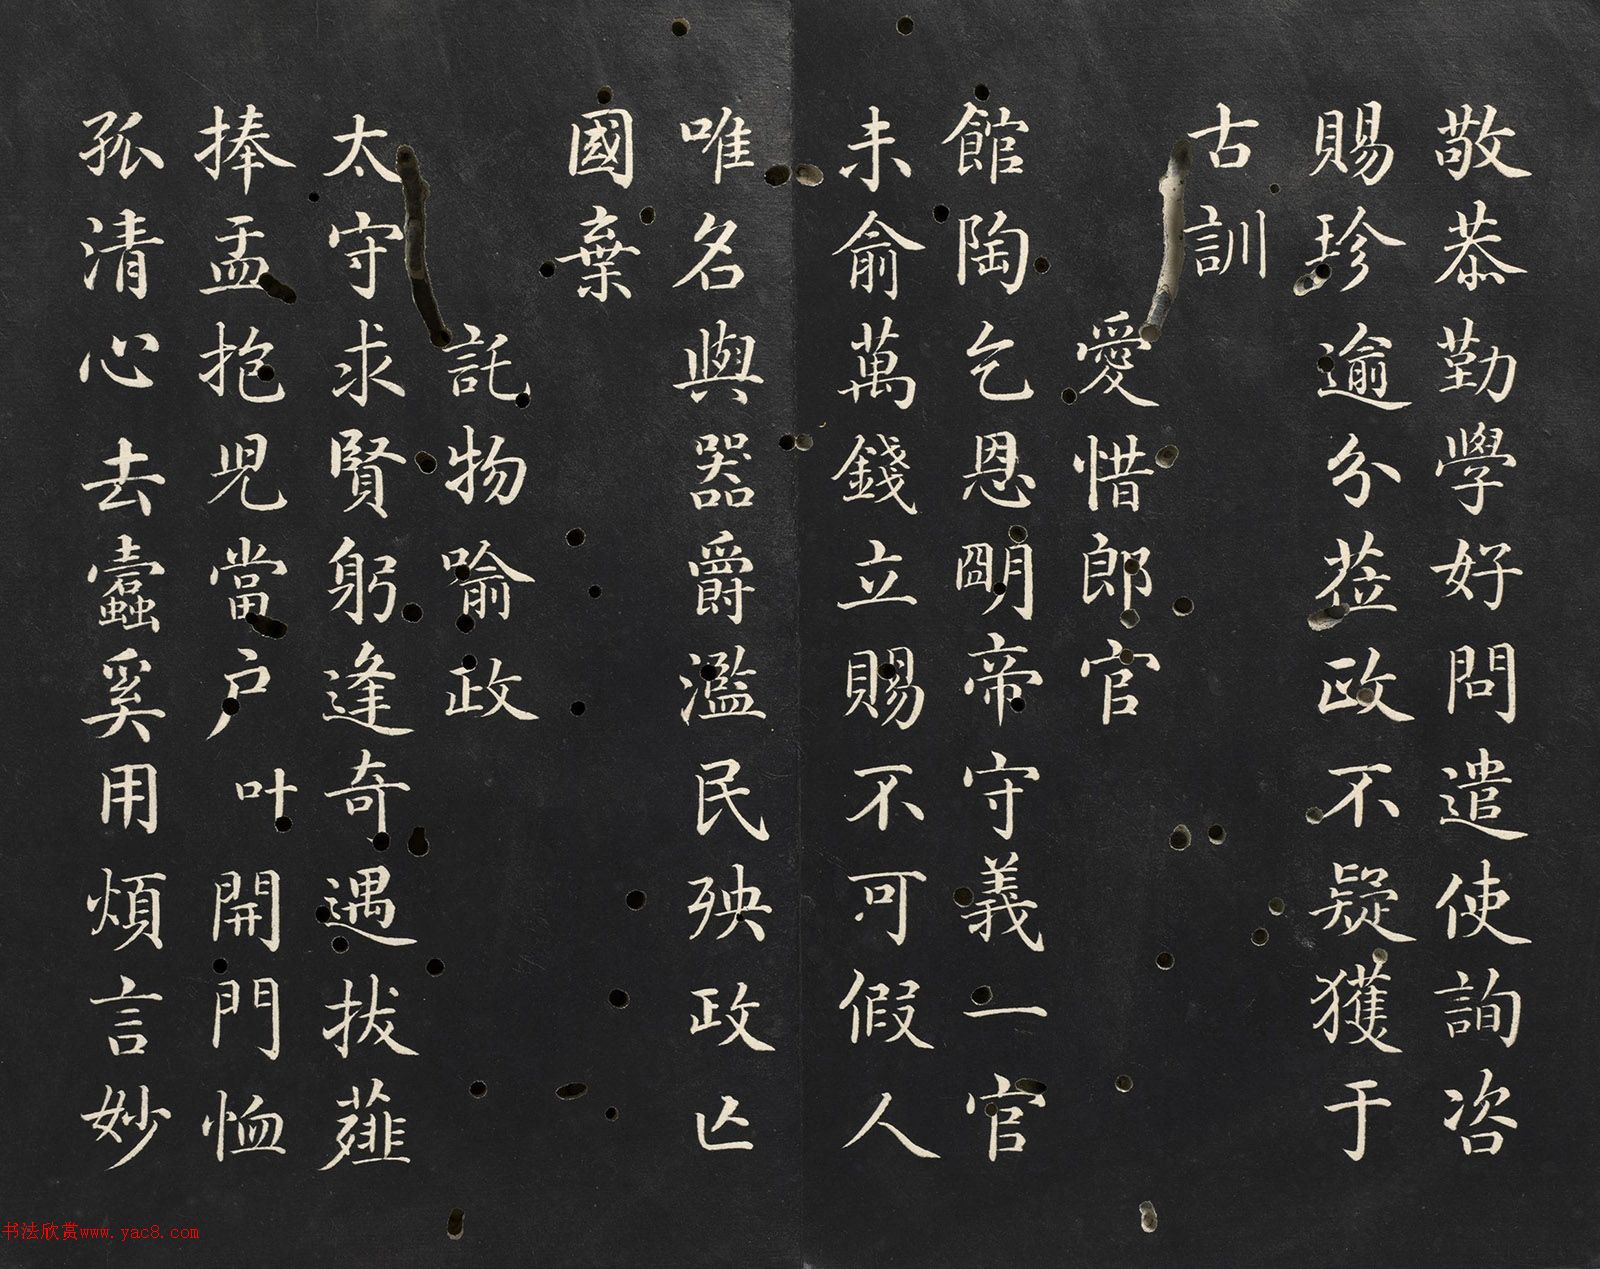 敬恭勤學好問遣使詢咨
賜珍逾分莅政不疑獲于
古訓
愛惜郎官
館陶乞恩朙帝守義一官
未俞萬錢立賜不可假人
唯名與器爵濫民殃政亾
國棄
託物喻政
太守求賢躬逢奇遇拔薤
捧盂抱児當户叶開門恤
孤清心去蠹奚用煩言妙
书法欣赏www.yac8.com